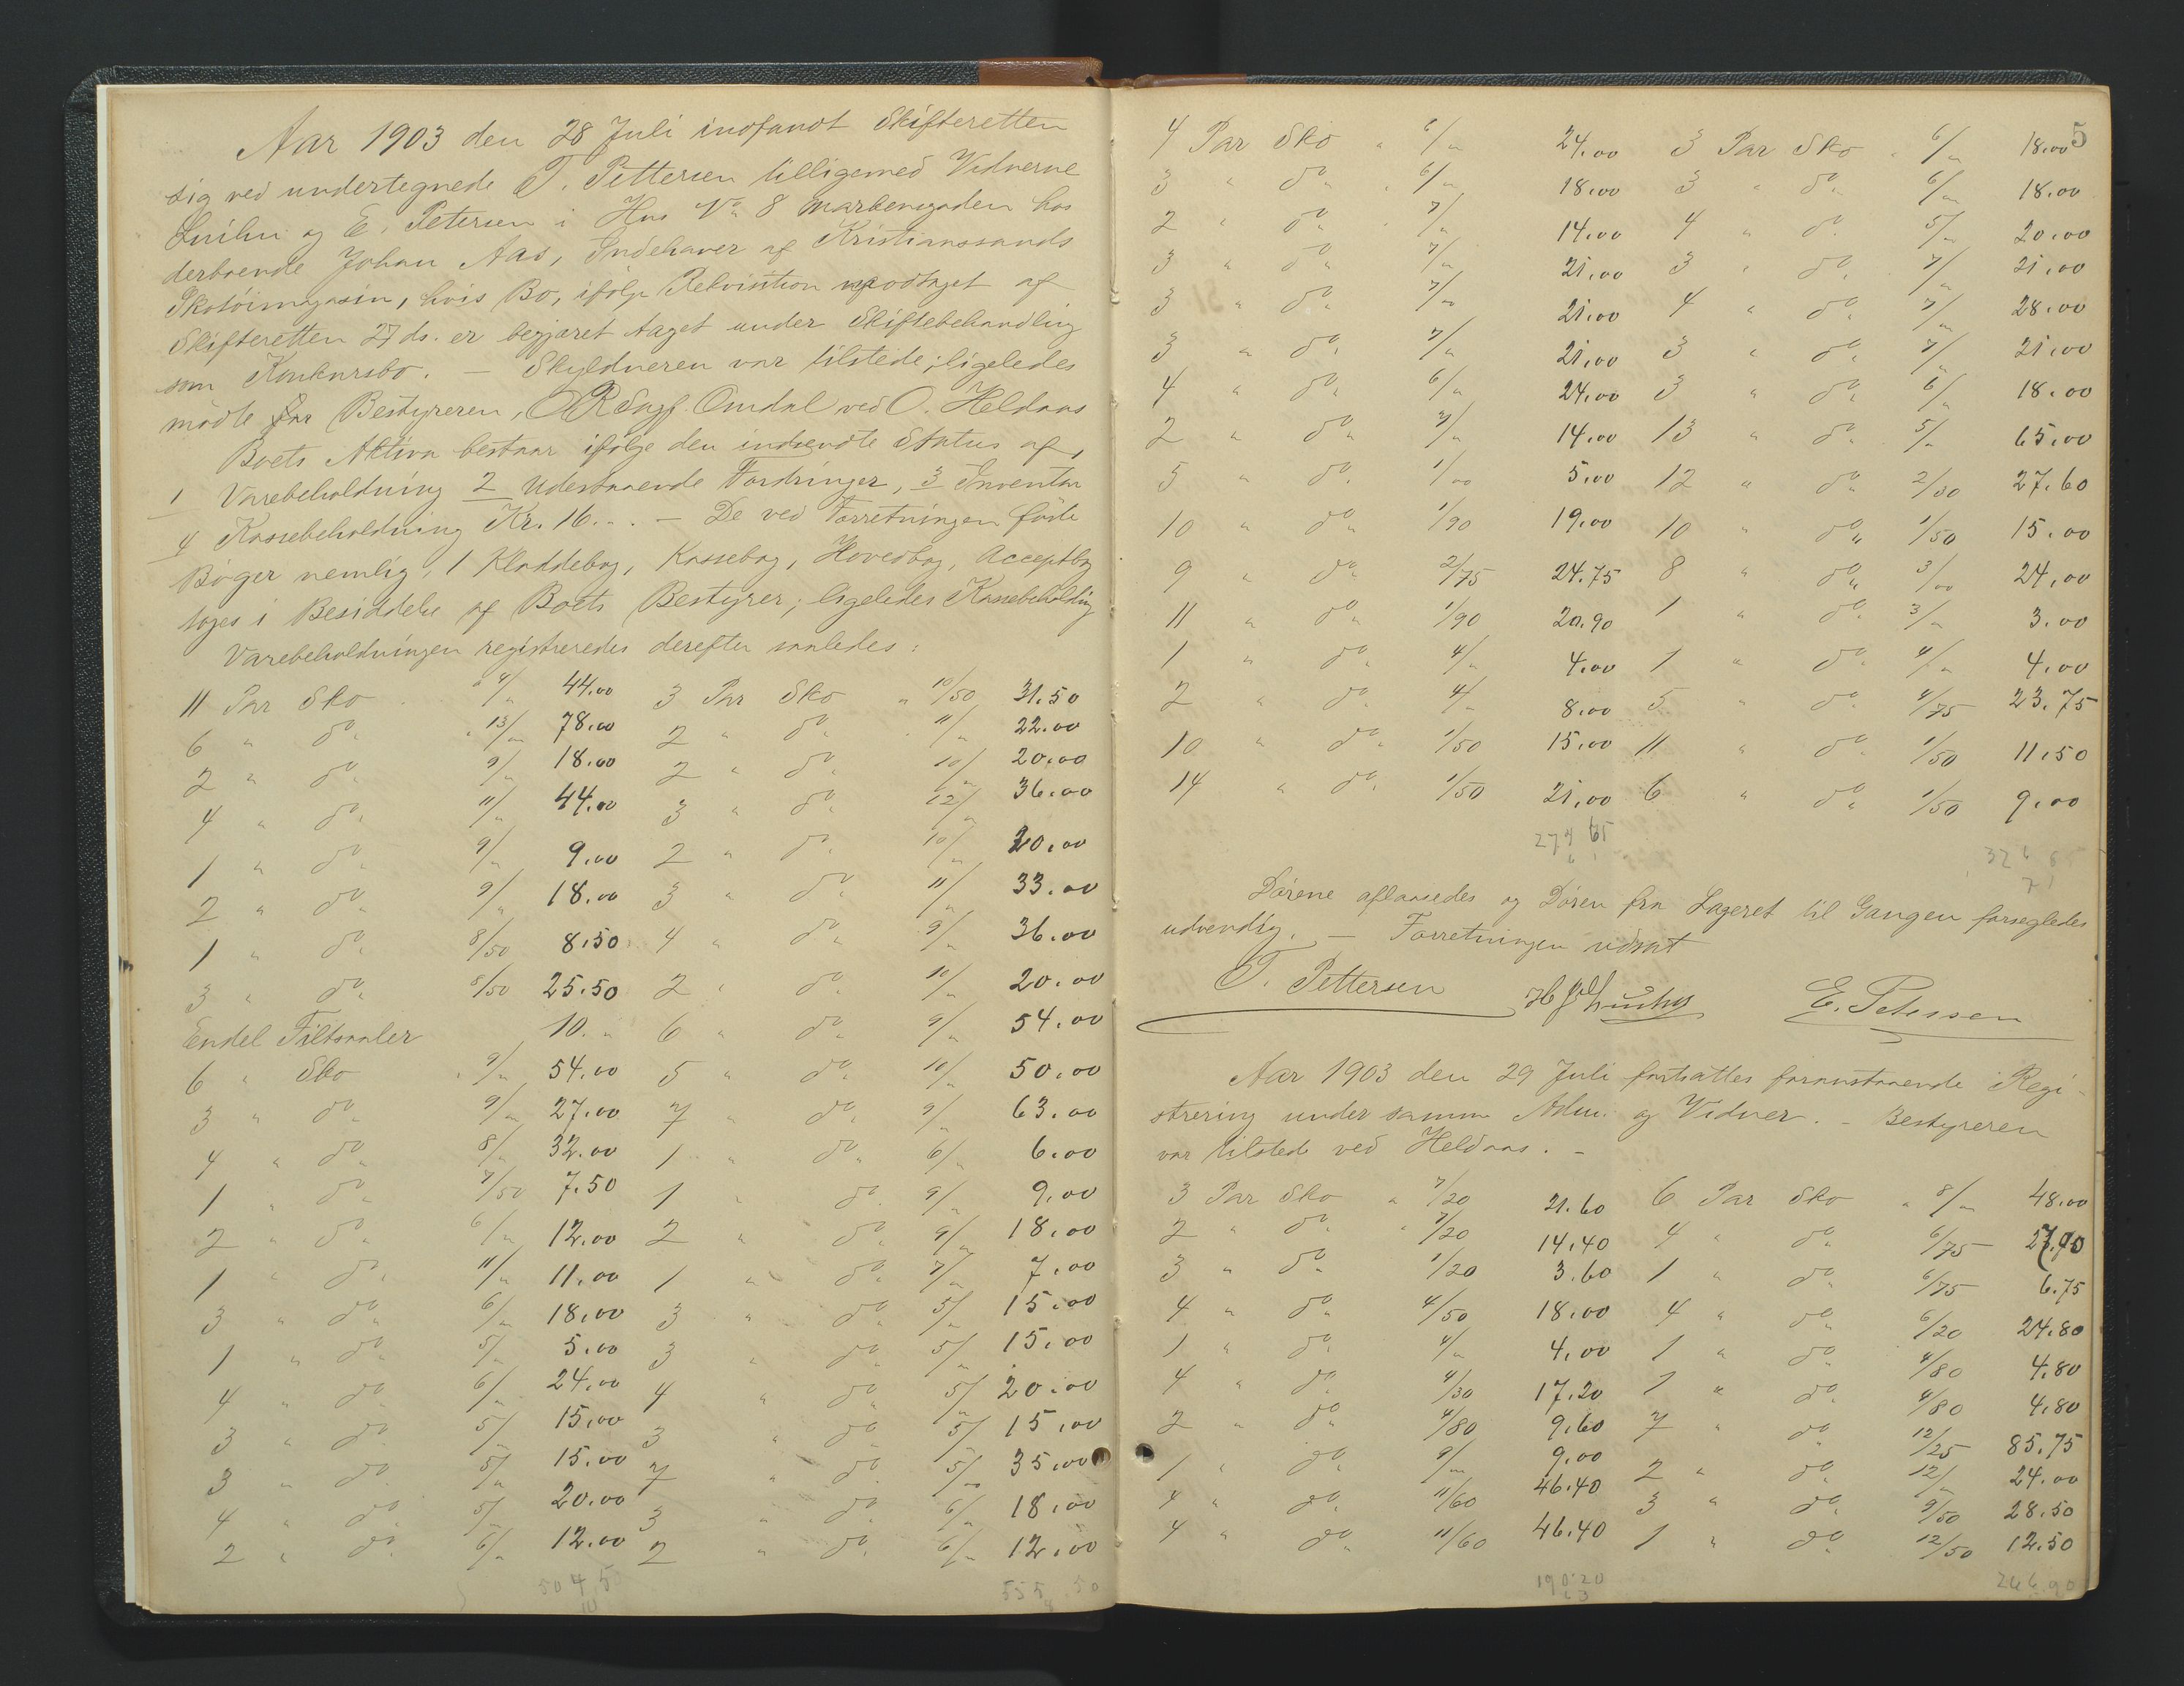 Aar 1903 den 28 Juli indfandt Skifteretten
sig ved undertegnede T. Pettersen tilligemed Vidnerne
og E. Petersen i Hus No 8 Markensgaden hos
derboende Johan Aas, Indehaver af Kristianssands
Skotöimagasin, hvis Bo, ifölge Rekvisition modtaget af
Skifteretten 27 ds. er begjæret taget under Skiftebehandling
som Konkursbo. — Skyldneren var tilstede; ligeledes
mödte for Bestyreren, ORSagf. Omdal ved O. Heldaas
Boets Aktiva bestaar ifölge den indsendte Status af,
1 Varebeholdning 2 Udestaaende Fordringer, 3 Inventar
4 Kassebeholdning Kr. 16.„. — De ved Forretningen förte
Böger nemlig, 1 Kladdebog, Kassebog, Hovedbog, Acceptbog
toges i Besiddelse af Boets Bestyrer; ligeledes Kassebeholding
Varebeholdningen registreredes derefter saaledes:
11 Par Sko " 4/„ 44.00 3 Par Sko " 10/50 31.50
6 " do " 13/„ 78.00 2 " do " 11/„ 22.00
2 " do " 9/„ 18.00 2 " do " 10/„ 20.00
4 " do " 11/„ 44.00 3 " do " 12/„ 36.00
1 " do " 9/„ 9.00 2 " do " 10/„ 20.00
2 " do " 9/„ 18.00 3 " do " 11/„ 33.00
1 " do " 8/50 8.50 4 " do " 9/„ 36.00
3 " do " 8/50 25.50 2 " do " 10/„ 20.00
Endel Filtsaaler 10.„ 6 " do " 9/„ 54.00
6 " Sko " 9/„ 54.00 5 " do " 10/„ 50.00
3 " do " 9/„ 27.00 7 " do " 9/„ 63.00
4 " do " 8/„ 32.00 1 " do " 6/„ 6.00
1 " do " 7/50 7.50 1 " do " 9/„ 9.00
2 " do " 6/„ 12.00 2 " do " 9/„ 18.00
1 " do " 11/„ 11.00 1 " do " 7/„ 7.00
3 " do " 6/„ 18.00 3 " do " 5/„ 15.00
1 " do " 5/„ 5.00 3 " do " 5/„ 15.00
4 " do " 6/„ 24.00 4 " do " 5/„ 20.00
3 " do " 5/„ 15.00 3 " do " 5/„ 15.00
3 " do " 5/„ 15.00 7 " do " 5/„ 35.00
4 " do " 5/„ 20.00 3 " do " 6/„ 18.00
2 " do " 6/„ 12.00 2 " do " 6/„ 12.00
504 50 555 50
5
4 Par Sko " 6/„ 24.00 3 Par Sko " 6/„ 18.00
3 " do " 6/„ 18.00 3 " do " 6/„ 18.00
2 " do " 7/„ 14.00 4 " do " 5/„ 20.00
3 " do " 7/„ 21.00 3 " do " 7/„ 21.00
3 " do " 7/„ 21.00 4 " do " 7/„ 28.00
3 " do " 7/„ 21.00 3 " do " 7/„ 21.00
4 " do " 6/„ 24.00 3 " do " 6/„ 18.00
2 " do " 7/„ 14.00 13 " do " 5/„ 65.00
5 " do " 1/00 5.00 12 " do " 2/30 27.60
10 " do " 1/90 19.00 10 " do " 1/50 15.00
9 " do " 2/75 24.75 8 " do " 3/00 24.00
11 " do " 1/90 20.90 1 " do " 3/„ 3.00
1 " do " 4/„ 4.00 1 " do " 4/„ 4.00
2 " do " 4/„ 8.00 5 " do " 4/75 23.75
10 " do " 1/50 15.00 11 " do " 1/50 11.50
14 " do " 1/50 21.00 6 " do " 1/50 9.00
Dörene aflaasedes og Dören fra Lageret til Gangen forsegledes
udvendig. — Forretningen udsat
T. Pettersen E. Petersen
Aar 1903 den 29 Juli fortsattes foranstaaende Regi-
strering under samme Adm. og Vidner. — Bestyreren
var tilstede ved Heldaas. —
3 Par Sko " 7/20 21.60 6 Par Sko " 8/„ 48.00
2 " do " 7/20 14.40 4 " do " 6/75 27.00
3 " do " 1/20 3.60 1 " do " 6/75 6.75
4 " do " 4/50 18.00 4 " do " 6/20 24.80
1 " do " 4/„ 4.00 1 " do " 4/80 4.80
4 " do " 4/30 17.20 1 " do " 4/80 4.80
2 " do " 4/80 9.60 7 " do " 12/25 85.75
1 " do " 9/„ 9.00 2 " do " 12/„ 24.00
4 " do " 11/60 46.40 3 " do " 9/50 28.50
4 " do " 11/60 46.40 1 " do " 12/50 12.50
190.20 266.90